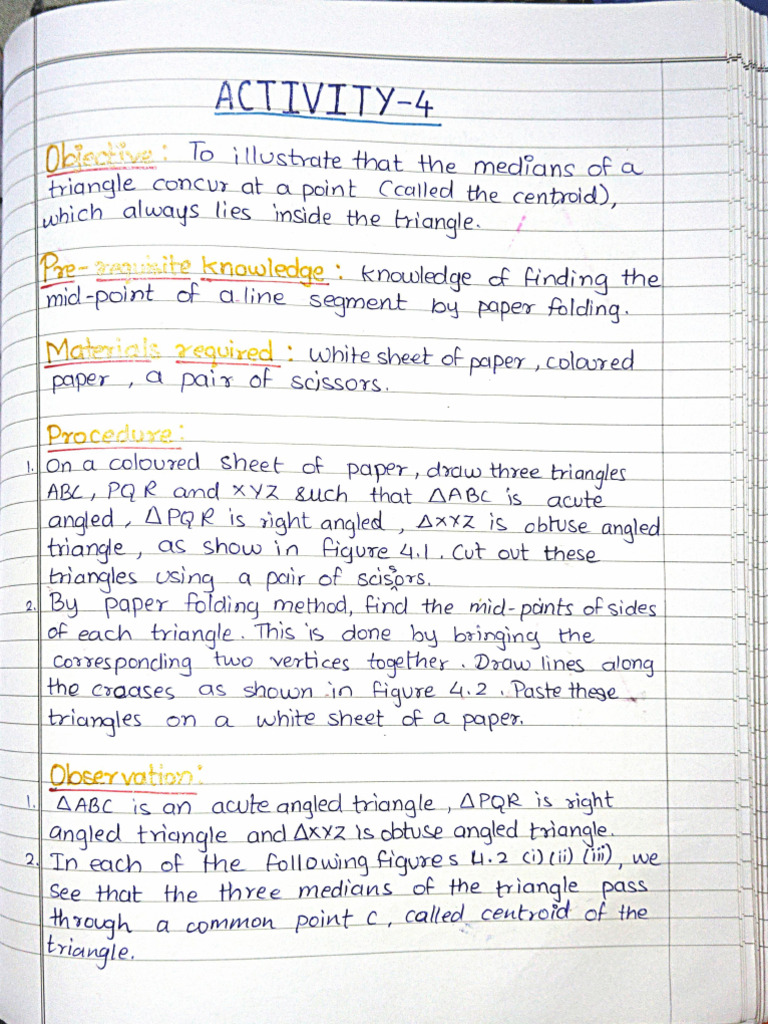 ACTIVITY-4
Objective: To illustrate that the medians of a
triangle concur at a point (called the centroid),
which always lies inside the triangle.
Pre-requisite knowledge: knowledge of finding the
mid-point of a line segment by paper folding.
Materials required: white sheet of paper, coloured
paper, a pair of scissors.
Procedure:
1. On a coloured sheet of paper, draw three triangles
ABC, PQR and XYZ such that △ABC is acute
angled, △PQR is right angled, △XYZ is obtuse angled
triangle, as show in figure 4.1. Cut out these
triangles using a pair of scissors.
2. By paper folding method, find the mid-points of sides
of each triangle. This is done by bringing the
corresponding two vertices together. Draw lines along
the creases as shown in figure 4.2. Paste these
triangles on a white sheet of a paper.
Observation:
1. △ABC is an acute angled triangle, △PQR is right
angled triangle and △XYZ is obtuse angled triangle.
2. In each of the following figures 4.2 (i) (ii) (iii), we
see that the three medians of the triangle pass
through a common point C, called centroid of the
triangle.